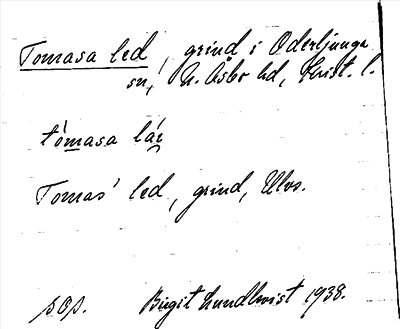 Tomasa led, grind i Oderljunga
sn, N. Åsbo hd, Krist. l.
tómasa lái
Tomas' led, grind,
sop. Birgit Lundkvist 1938.